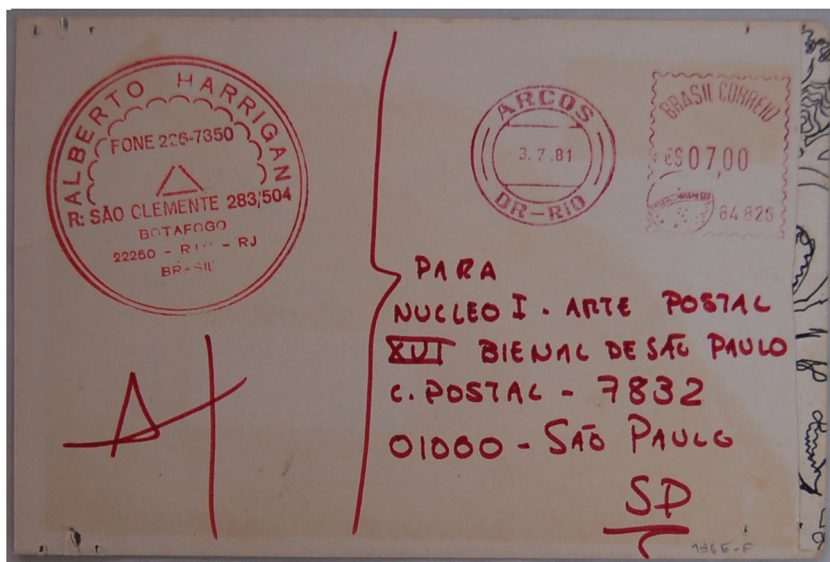 ALBERTO HARRIGAN
FONE 226-7350
R: SÃO CLEMENTE 283/504
BOTAFOGO
22260 - RIO - RJ
BRASIL
ARCOS
3.7.81
DR-RIO
BRASIL CORREIO
CR$ 07,00
84826
PARA
NUCLEO I. ARTE POSTAL
XVI BIENAL DE SÃO PAULO
C. POSTAL - 7832
01000 - SÃO PAULO
SP
136E-F